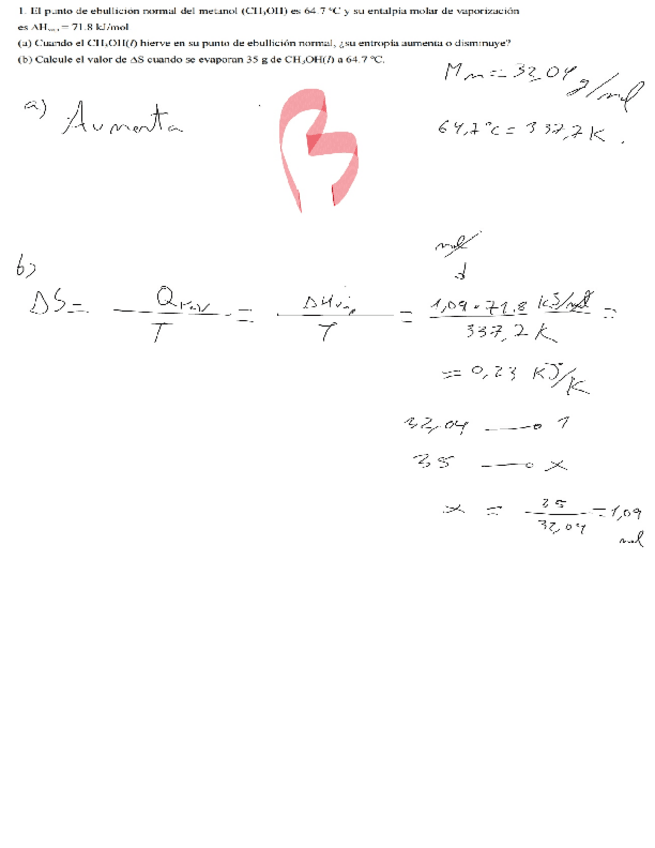 1. El punto de ebullición normal del metanol (CH₃OH) es 64.7 °C y su entalpía molar de vaporización
es ΔHvap = 71.8 kJ/mol
(a) Cuando el CH₃OH(l) hierve en su punto de ebullición normal, ¿su entropía aumenta o disminuye?
(b) Calcule el valor de ΔS cuando se evaporan 35 g de CH₃OH(l) a 64.7 °C.
Mm = 32,04 g/mol
a) Aumenta
64,7°C = 337,7 K.
b)
mol
ΔS = Qrev / T = ΔHvap / T = 1,09 · 71.8 kJ/mol / 337,2 K =
= 0,23 KJ/K
32,04 — 1
35 — x
x = 35 / 32,04 = 1,09
mol